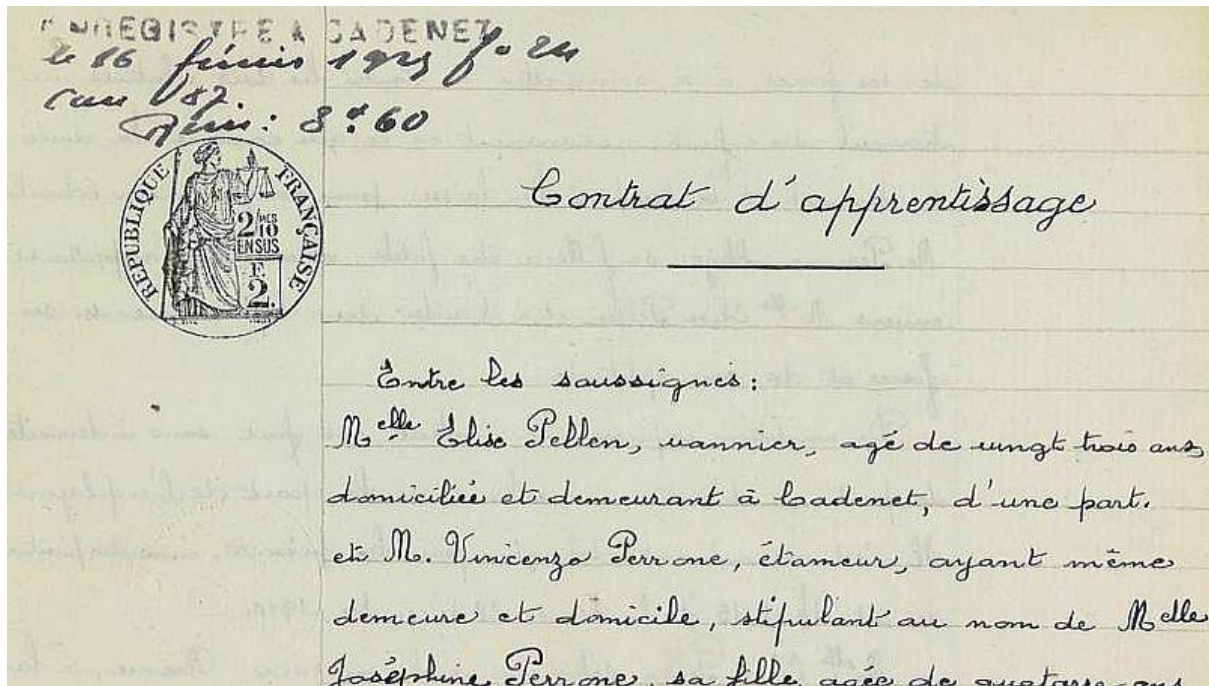 ENREGISTRE A CADENET
le 16 février 1925 fo 24
case 87
8f 60
REPUBLIQUE FRANÇAISE
2/10
EN SUS
F.
2.
Contrat d'apprentissage
Entre les soussignés :
Melle Elise Pellen, vannier, agé de vingt trois ans,
domiciliée et demeurant à Cadenet, d'une part.
et M. Vincenzo Perrone, étameur, ayant même
demeure et domicile, stipulant au nom de Melle
Joséphine Perrone, sa fille agée de quatorze ans